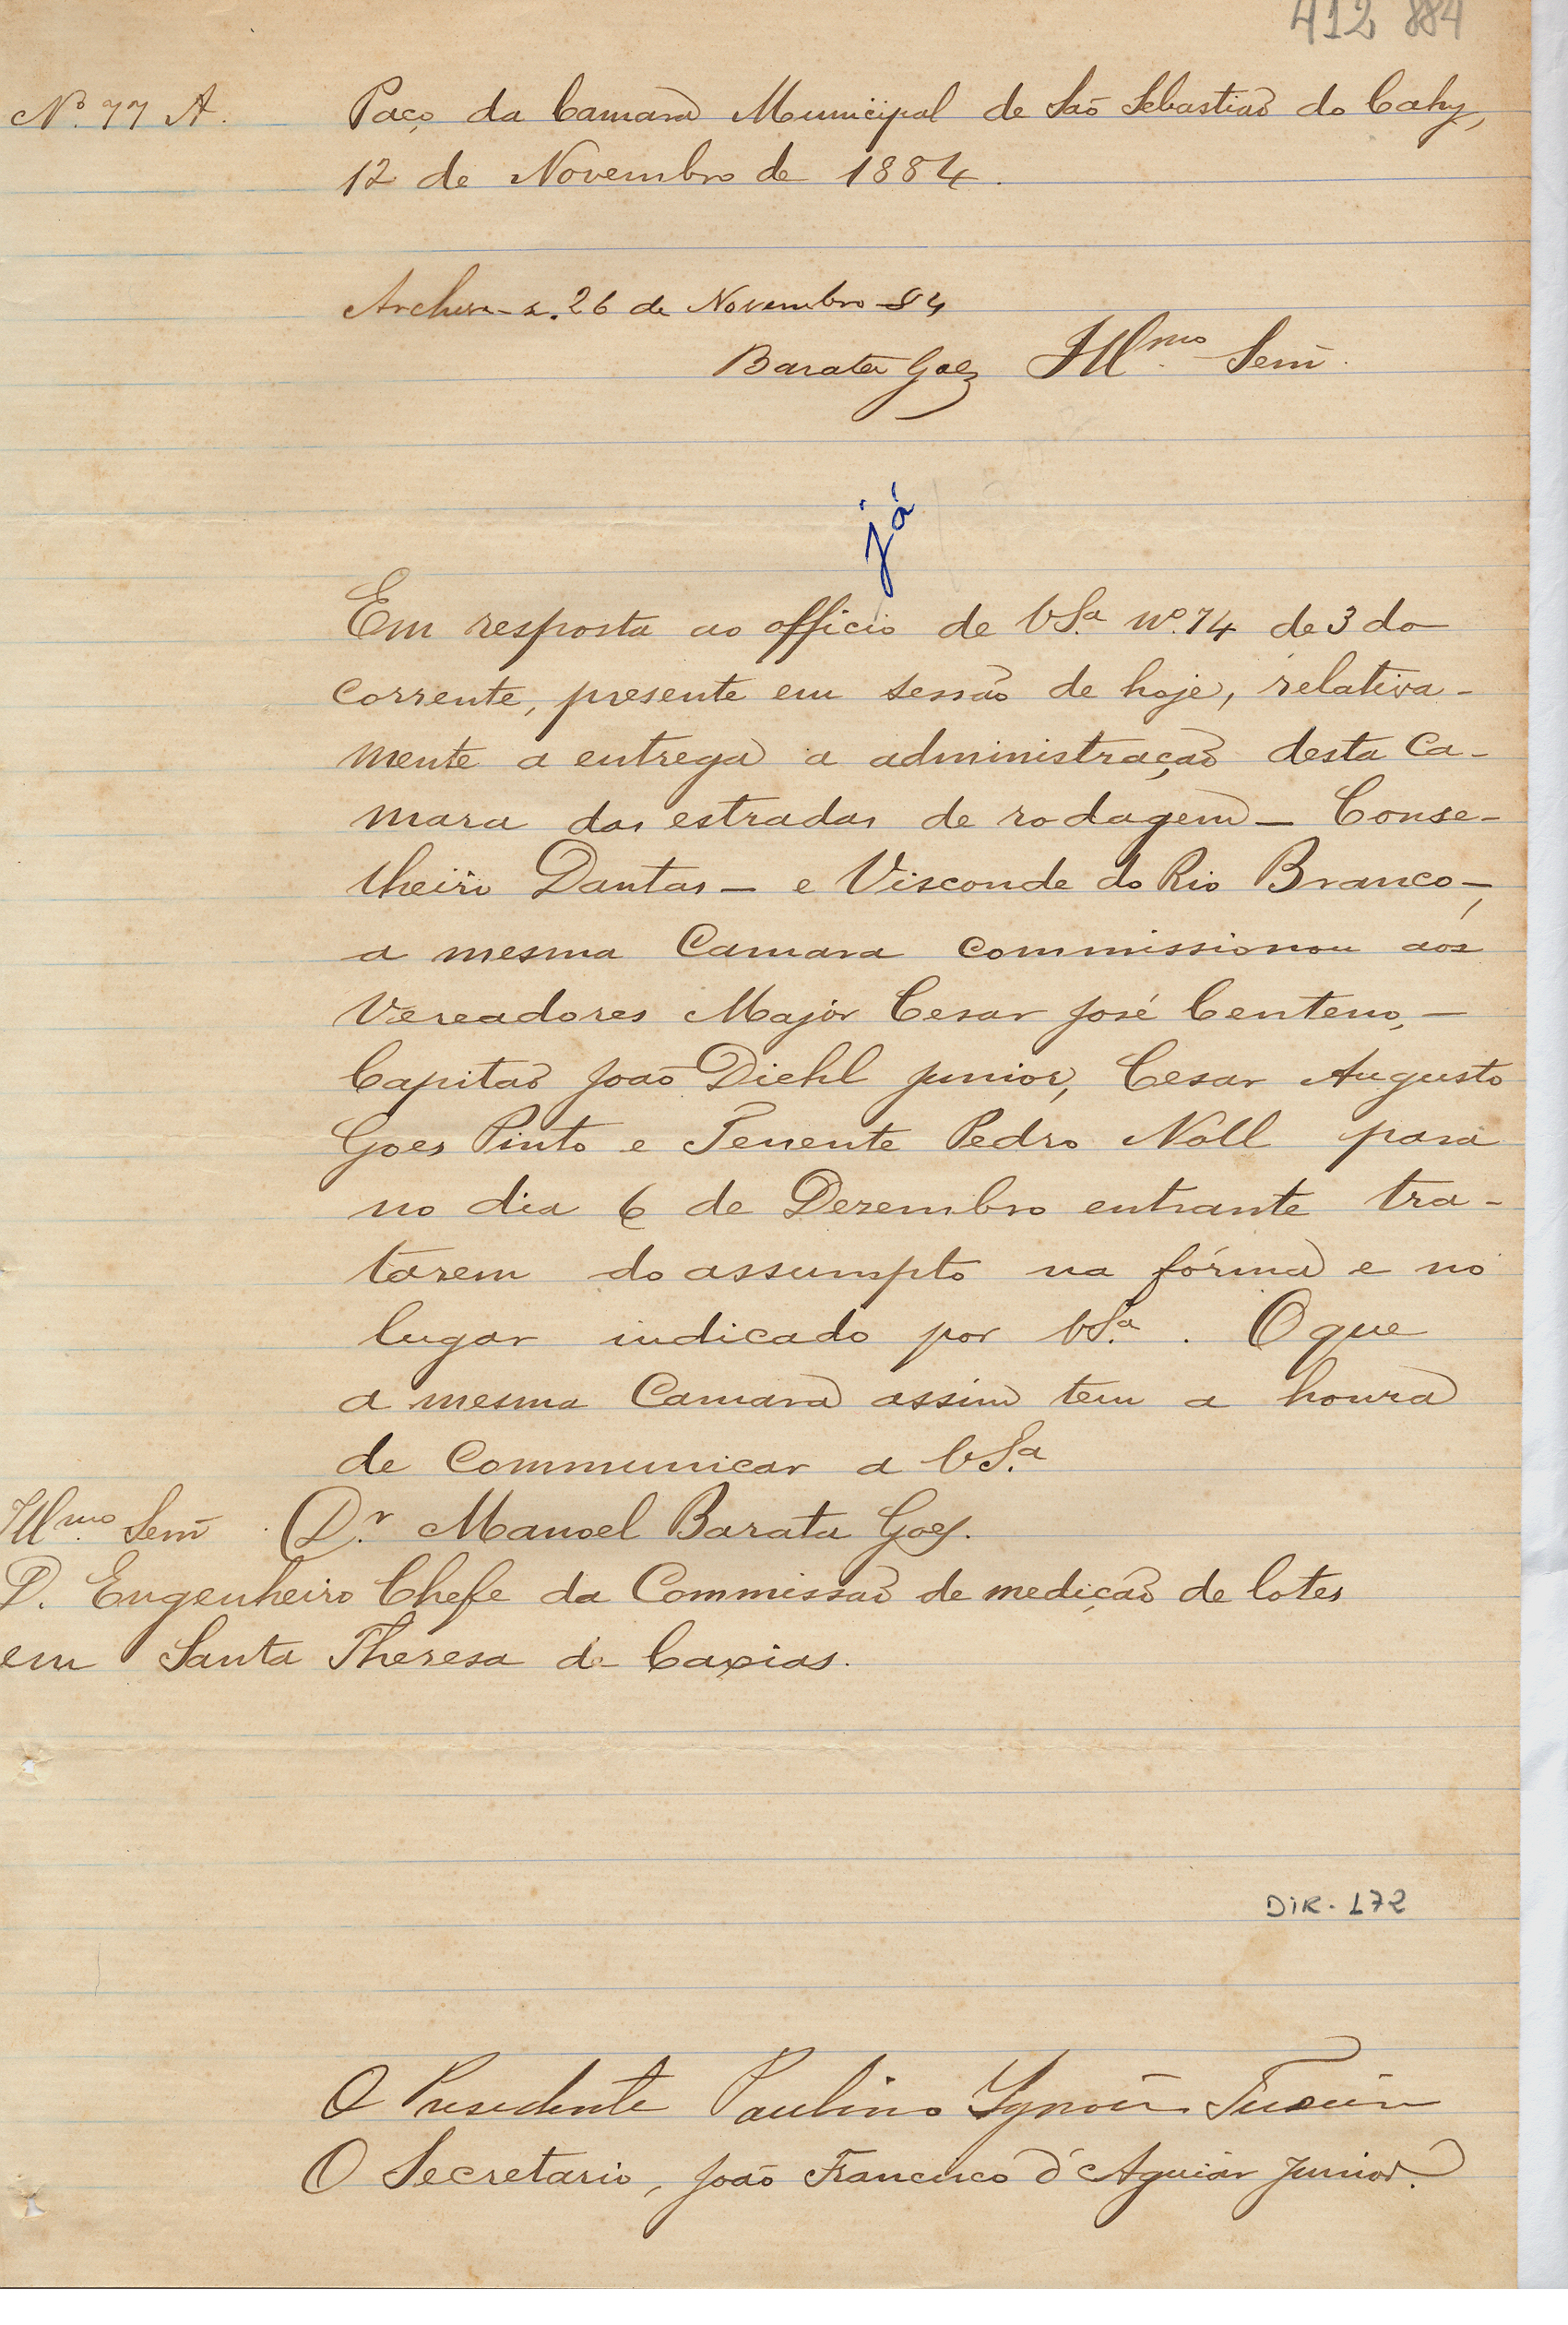 412 884
Nº 77 A. Paço da Camara Municipal de São Sebastião do Cahy,
12 de Novembro de 1884.
Archive-se. 26 de Novembro 84
Barata Goes Illmo. Senr.
já
Em resposta ao officio de VSa. nº. 74 de 3 do
corrente, presente em sessão de hoje, relativa-
mente a entrega a administração desta Ca-
mara das estradas de rodagem – Conse-
lheiro Dantas – e Visconde do Rio Branco –,
a mesma Camara commissionou aos
Vereadores Major Cesar José Centeno, –
Capitão João Diehl Junior, Cesar Augusto
Goes Pinto e Tenente Pedro Noll para
no dia 6 de Dezembro entrante tra-
tarem do assumpto na fórma e no
lugar indicado por VSa. . O que
a mesma Camara assim tem a honra
de communicar a VSa.
Illmo. Senr. Dr. Manoel Barata Goes.
D. Engenheiro Chefe da Commissão de medição de lotes
em Santa Theresa de Caxias.
DIR. 172
O Presidente Paulino Ignacio
O Secretario, João Francisco d'Aguiar Junior.